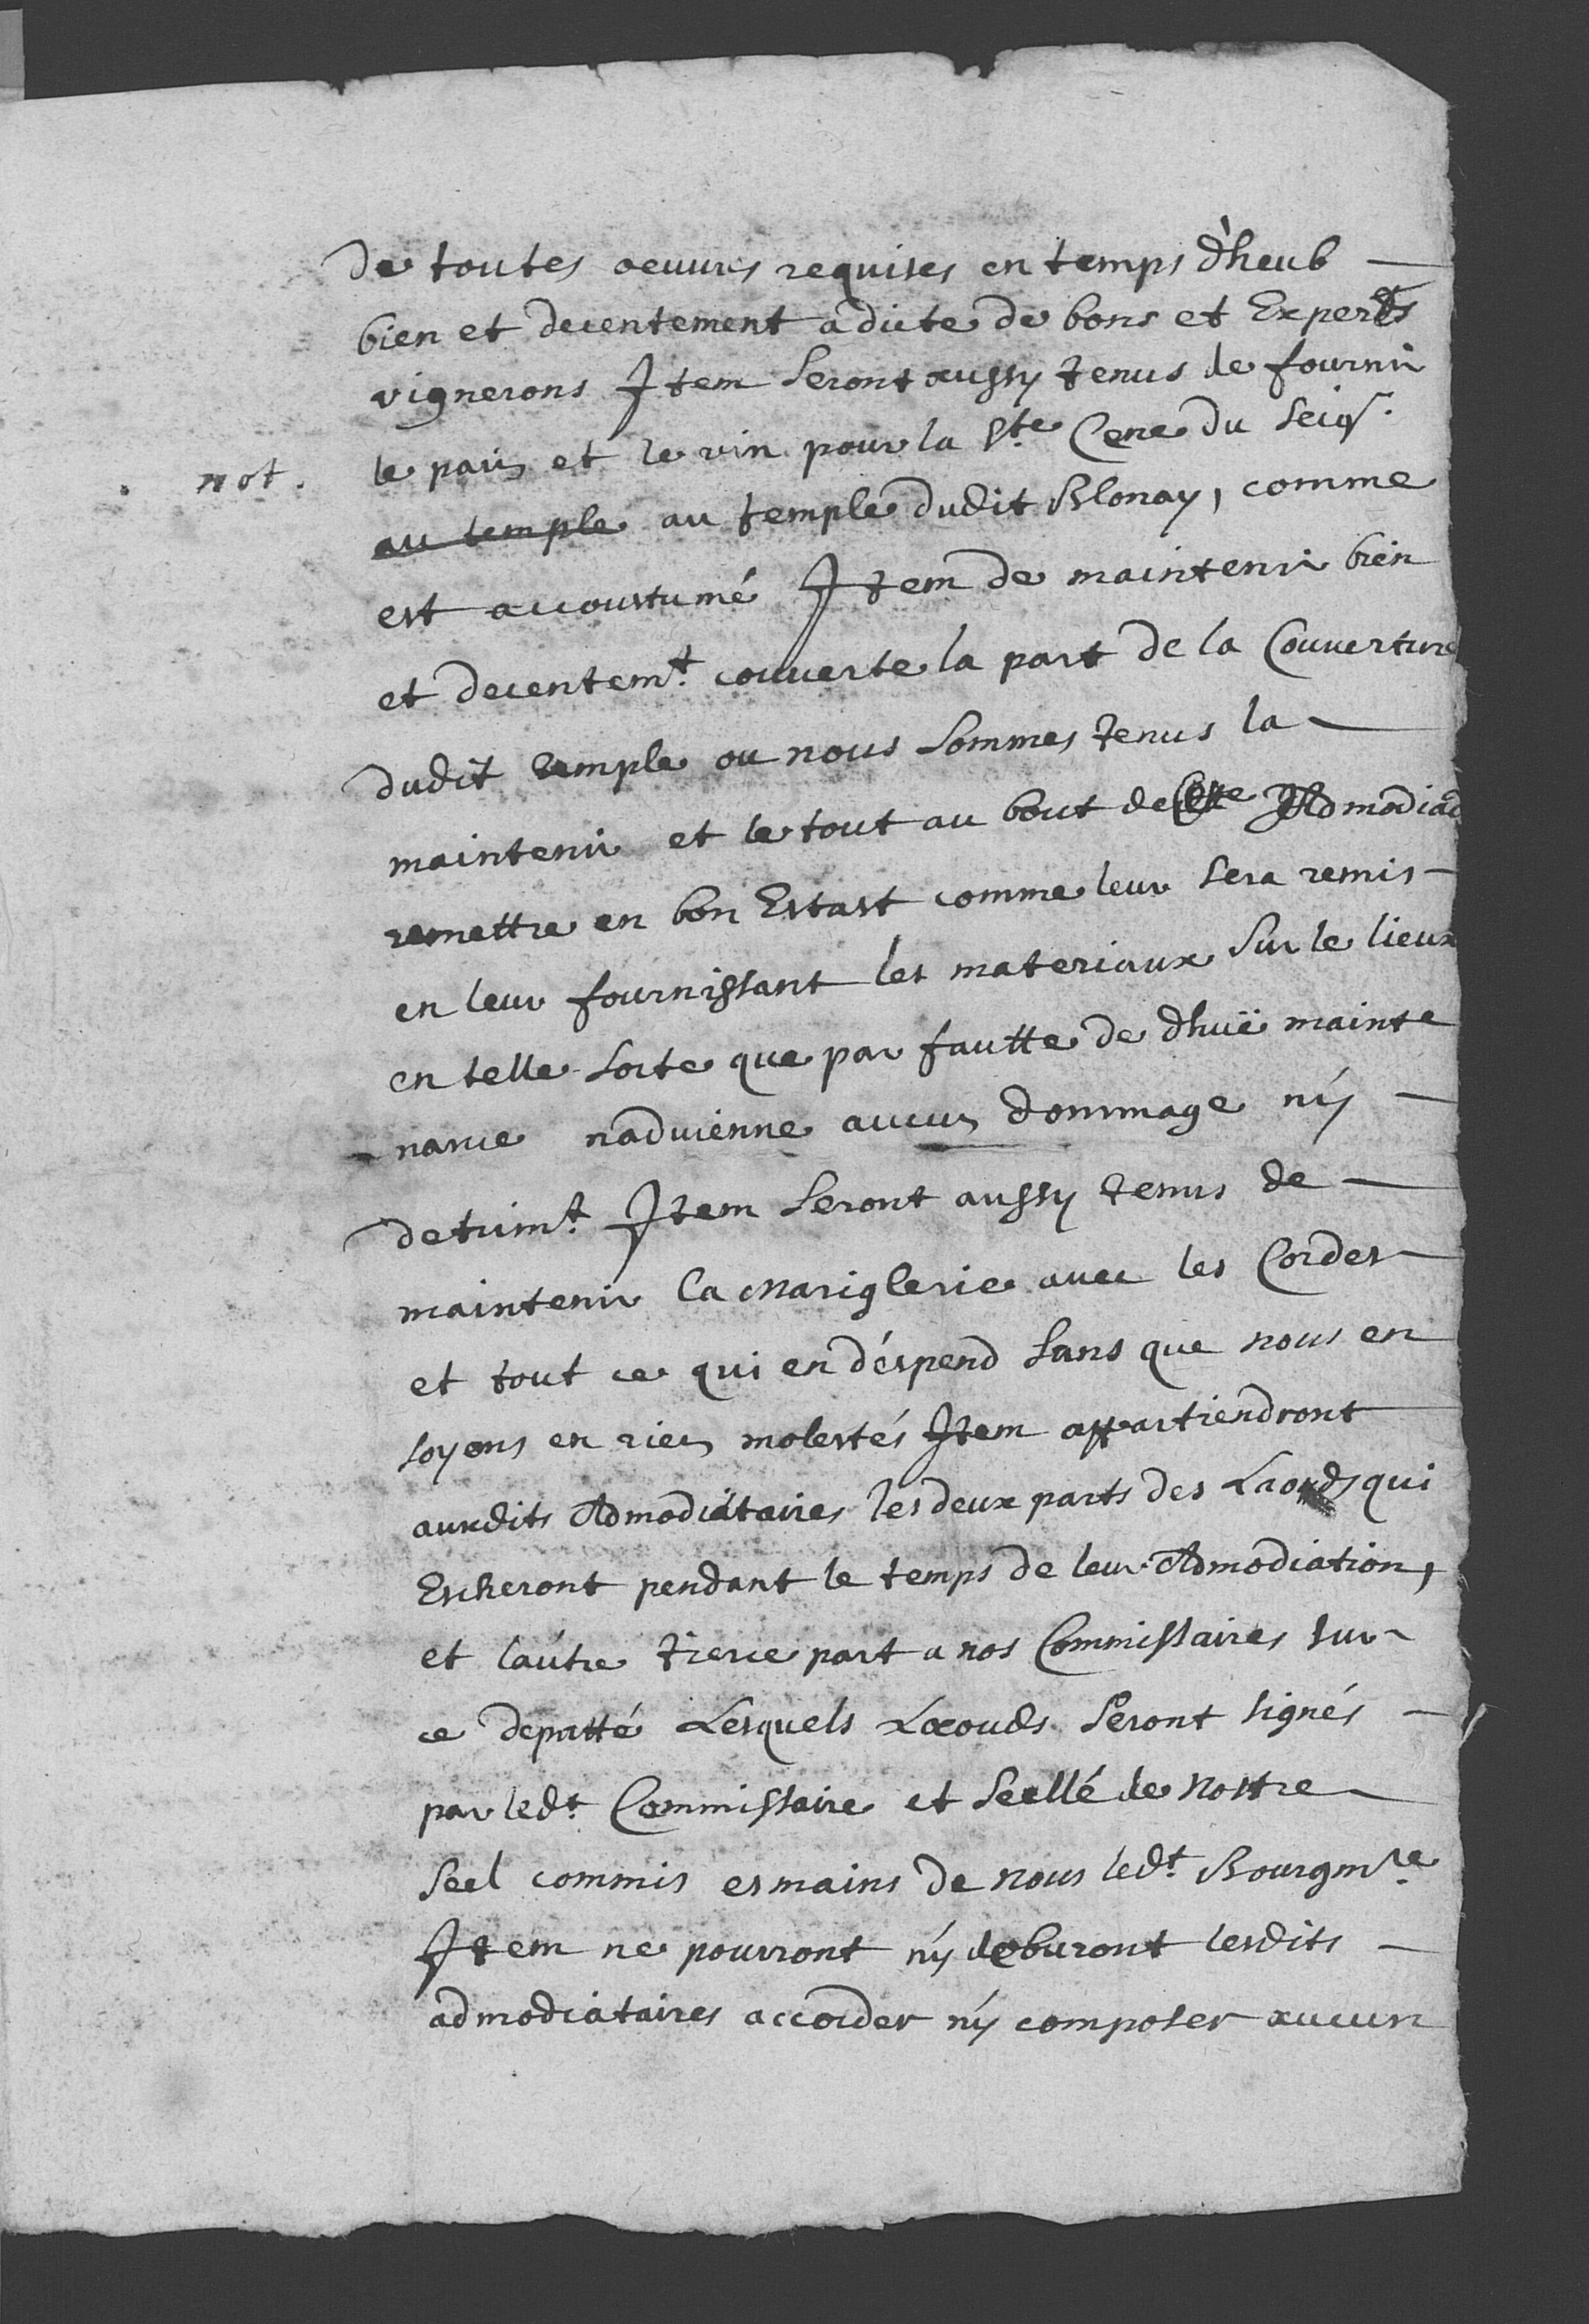 de toutes oeuures requises en temps d'heub
bien et decentement a dicte de bons et Experts
vignerons Item seront aussy tenus de fournir
not. le pain et le vin pour la Ste Cene du Seigr.
au temple au temple dudit Blonay, comme
est accoustumé Item de maintenir bien
et decentemt. couuerte la part de la Couuerture
dudit temple ou nous sommes tenus la
maintenir et le tout au bout de Admodiaõ
remettre en bon Estast comme leur sera remis
en leur fournissant les materiaux sur le lieux
en telle sorte que par fautte de dhuë mainte
nance naduienne aucun dommage nÿ
detrimt. Item seront aussy tenus de
maintenir la Mariglerie auec les Cordes
et tout ce qui en déspend sans que nous en
soyons en rien molestés Item appartiendront
auxdits Admodiataires les deux parts des Laouds qui
Escheront pendant le temps de leur Admodiation,
et lautre tierce part a nos Commissaires sur
ce deputté Lesquels Laouds seront signés
par ledt. Commissaire et seellé de nostre
seel commis es mains de nous ledt. Bourgmre.
Item ne pourront nÿ deburont lesdits
admodiataires accorder nÿ composer aucun